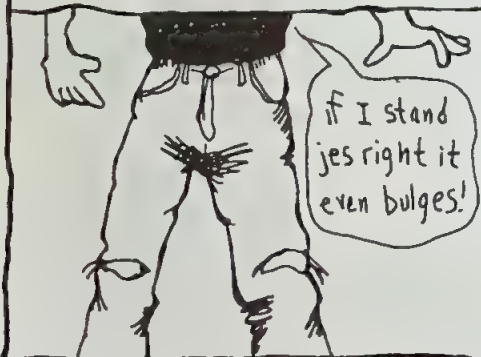 if I stand
jes right it
even bulges!